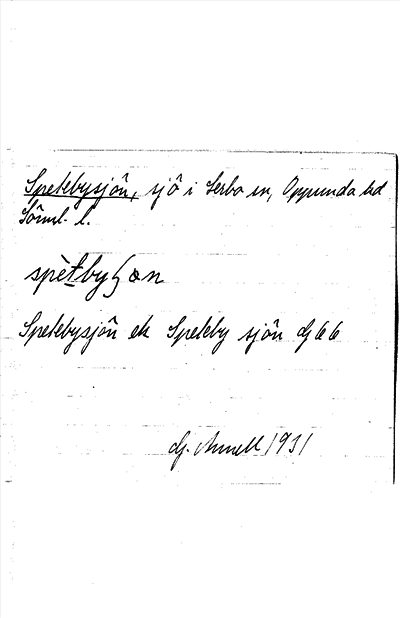 Spetebysjön, sjö i Lerbo sn, Oppunda hd
Sörml. l.
spètbyʃɷn
Spetebysjön ek Speteby sjön Gj 66
Gj. Annell 1931